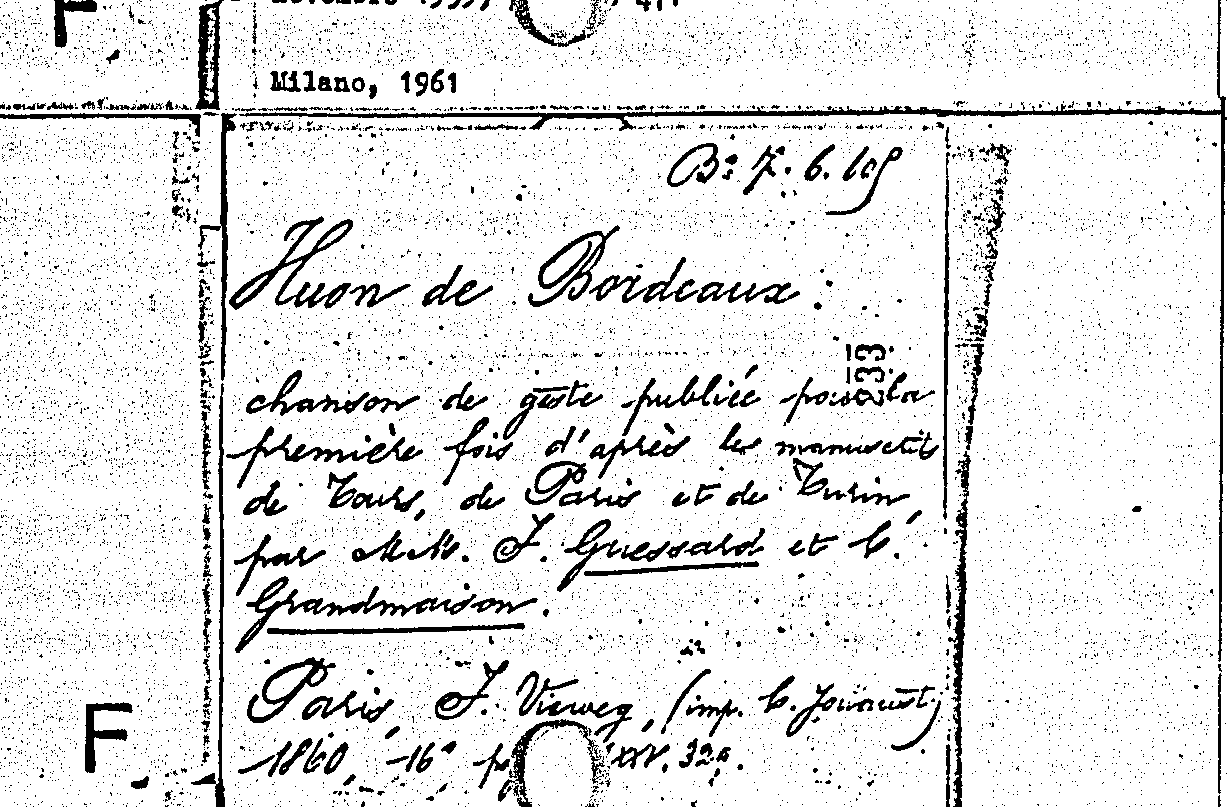 F
Milano, 1961
B: 7. 6. 105
Huon de Bordeaux :
chanson de geste publiée pour la
première fois d'après les manuscrits
de Tours, de Paris et de Turin,
par MM. F. Guessard et C.
Grandmaison.
Paris, F. Vieweg, (imp. C. Jouaust)
F
1860, -16°